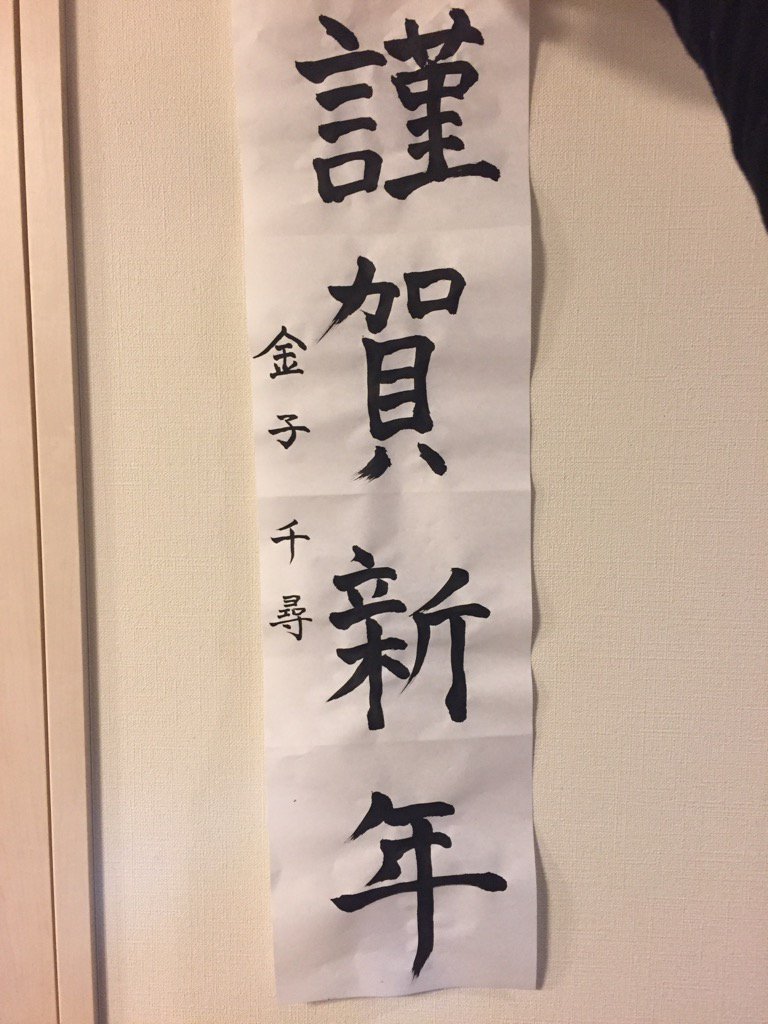 謹賀新年
金子千尋